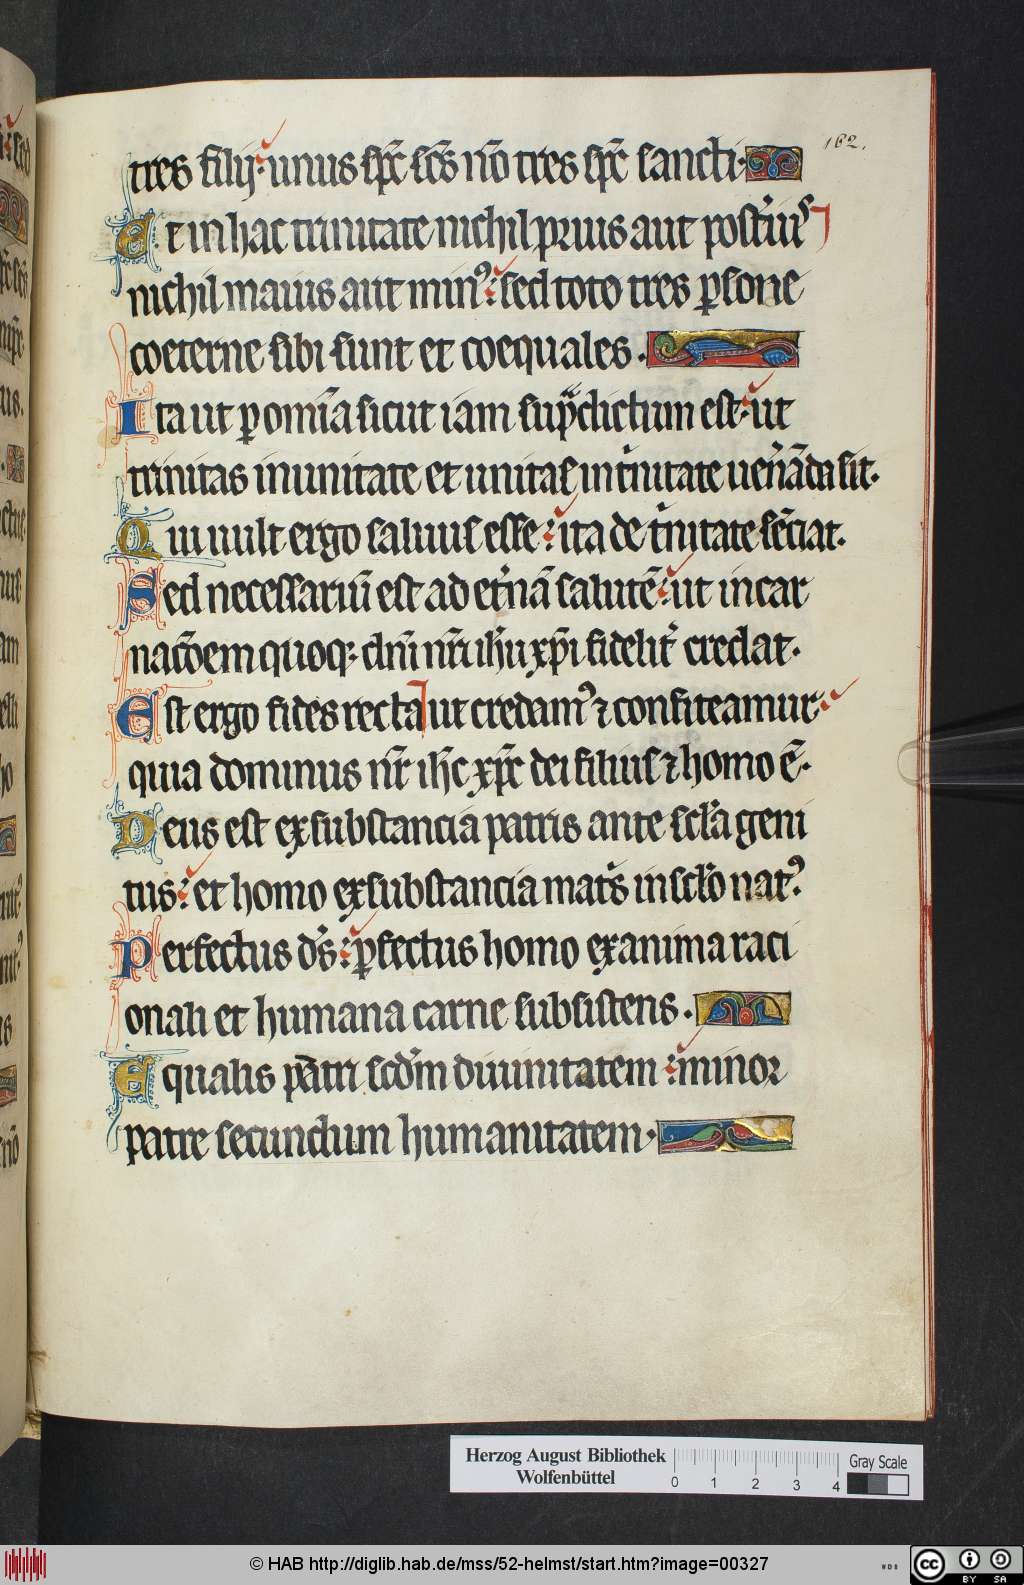 162.
tres filij· unus sp̄c sc̄s nō tres sp̄c sancti·
Et in hac trinitate nichil prius aut post͛iꝰ
nichil maius aut minꝰ: sed toto tres ꝑsone
coeterne sibi sunt et coequales.
Ita ut ꝑ omīa sicut iam sup̄dictum est· ut
trinitas in unitate et unitas in t͛nitate uen͛āda sit.
Qui uult ergo saluus esse: ita de t͛nitate sēciat.
Sed necessariū est ad et͛nā salutē: ut incar
nacōem quoq; dn̄i nr̄i ih̄u xp̄i fidelit͛ credat.
Est ergo fides recta ut credamꝰ ⁊ confiteamur
quia dominus nr̄ ih̄c xp̄c dei filius ⁊ homo ē.
Deus est ex substancia patris ante sc̄la geni
tus: et homo ex substancia mat͛s in sc̄lo natꝰ.
Perfectus ds̄: ꝑfectus homo ex anima raci
onali et humana carne subsistens.
Equalis pat͛ri scd̄m diuinitatem: minor
patre secundum humanitatem.
Herzog August Bibliothek
Wolfenbüttel
0 1 2 3 4
Gray Scale
© HAB http://diglib.hab.de/mss/52-helmst/start.htm?image=00327
WDB
cc BY SA